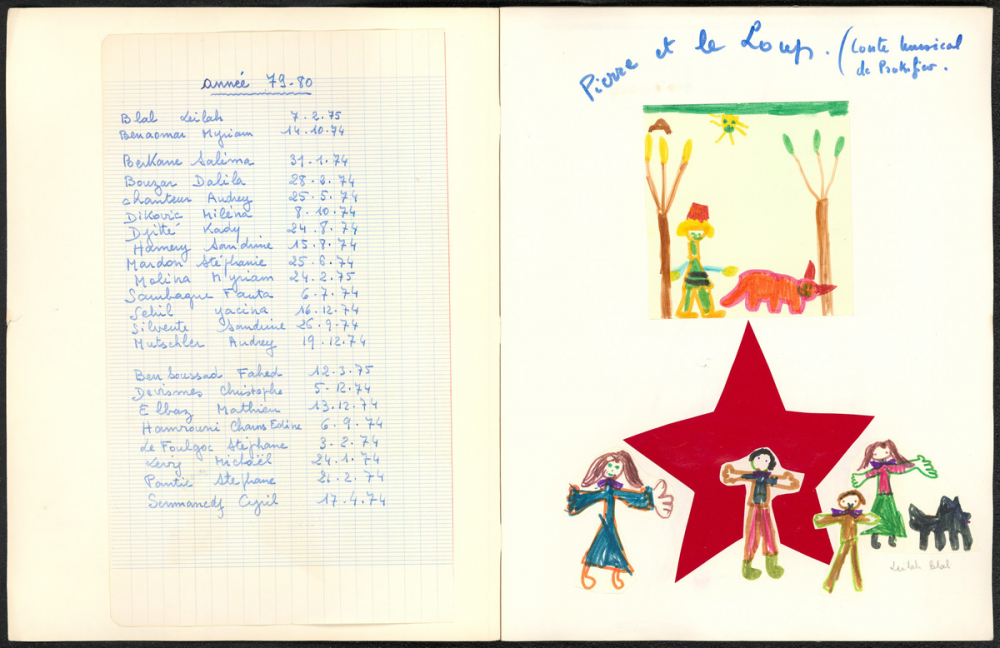 année 79-80
Blal Leilah 7.2.75
Benaomar Myriam 14.10.74
Berkane Salima 31.1.74
Bouzar Dalila 28.6.74
Chanteur Audrey 25.5.74
Dikovic Miléna 8.10.74
Djitté Kady 24.8.74
Hameny Sandrine 15.8.74
Mardon Stéphanie 25.6.74
Molina Myriam 24.2.75
Sambaque Fanta 6.7.74
Sehil Yacina 16.12.74
Silvente Sandrine 26.9.74
Mutschler Audrey 19.12.74
Ben Soussad Fahed 12.3.75
Devismes Christophe 5.12.74
Elbaz Mathieu 13.12.74
Hamrouni Chams Edine 6.9.74
Le Foulgoc Stéphane 3.2.74
Levy Mickaël 24.1.74
Pantic Stephane 21.2.74
Sermanedj Cyril 17.4.74
Pierre et le Loup. (Conte musical
de Prokofiev.
Leilah Blal